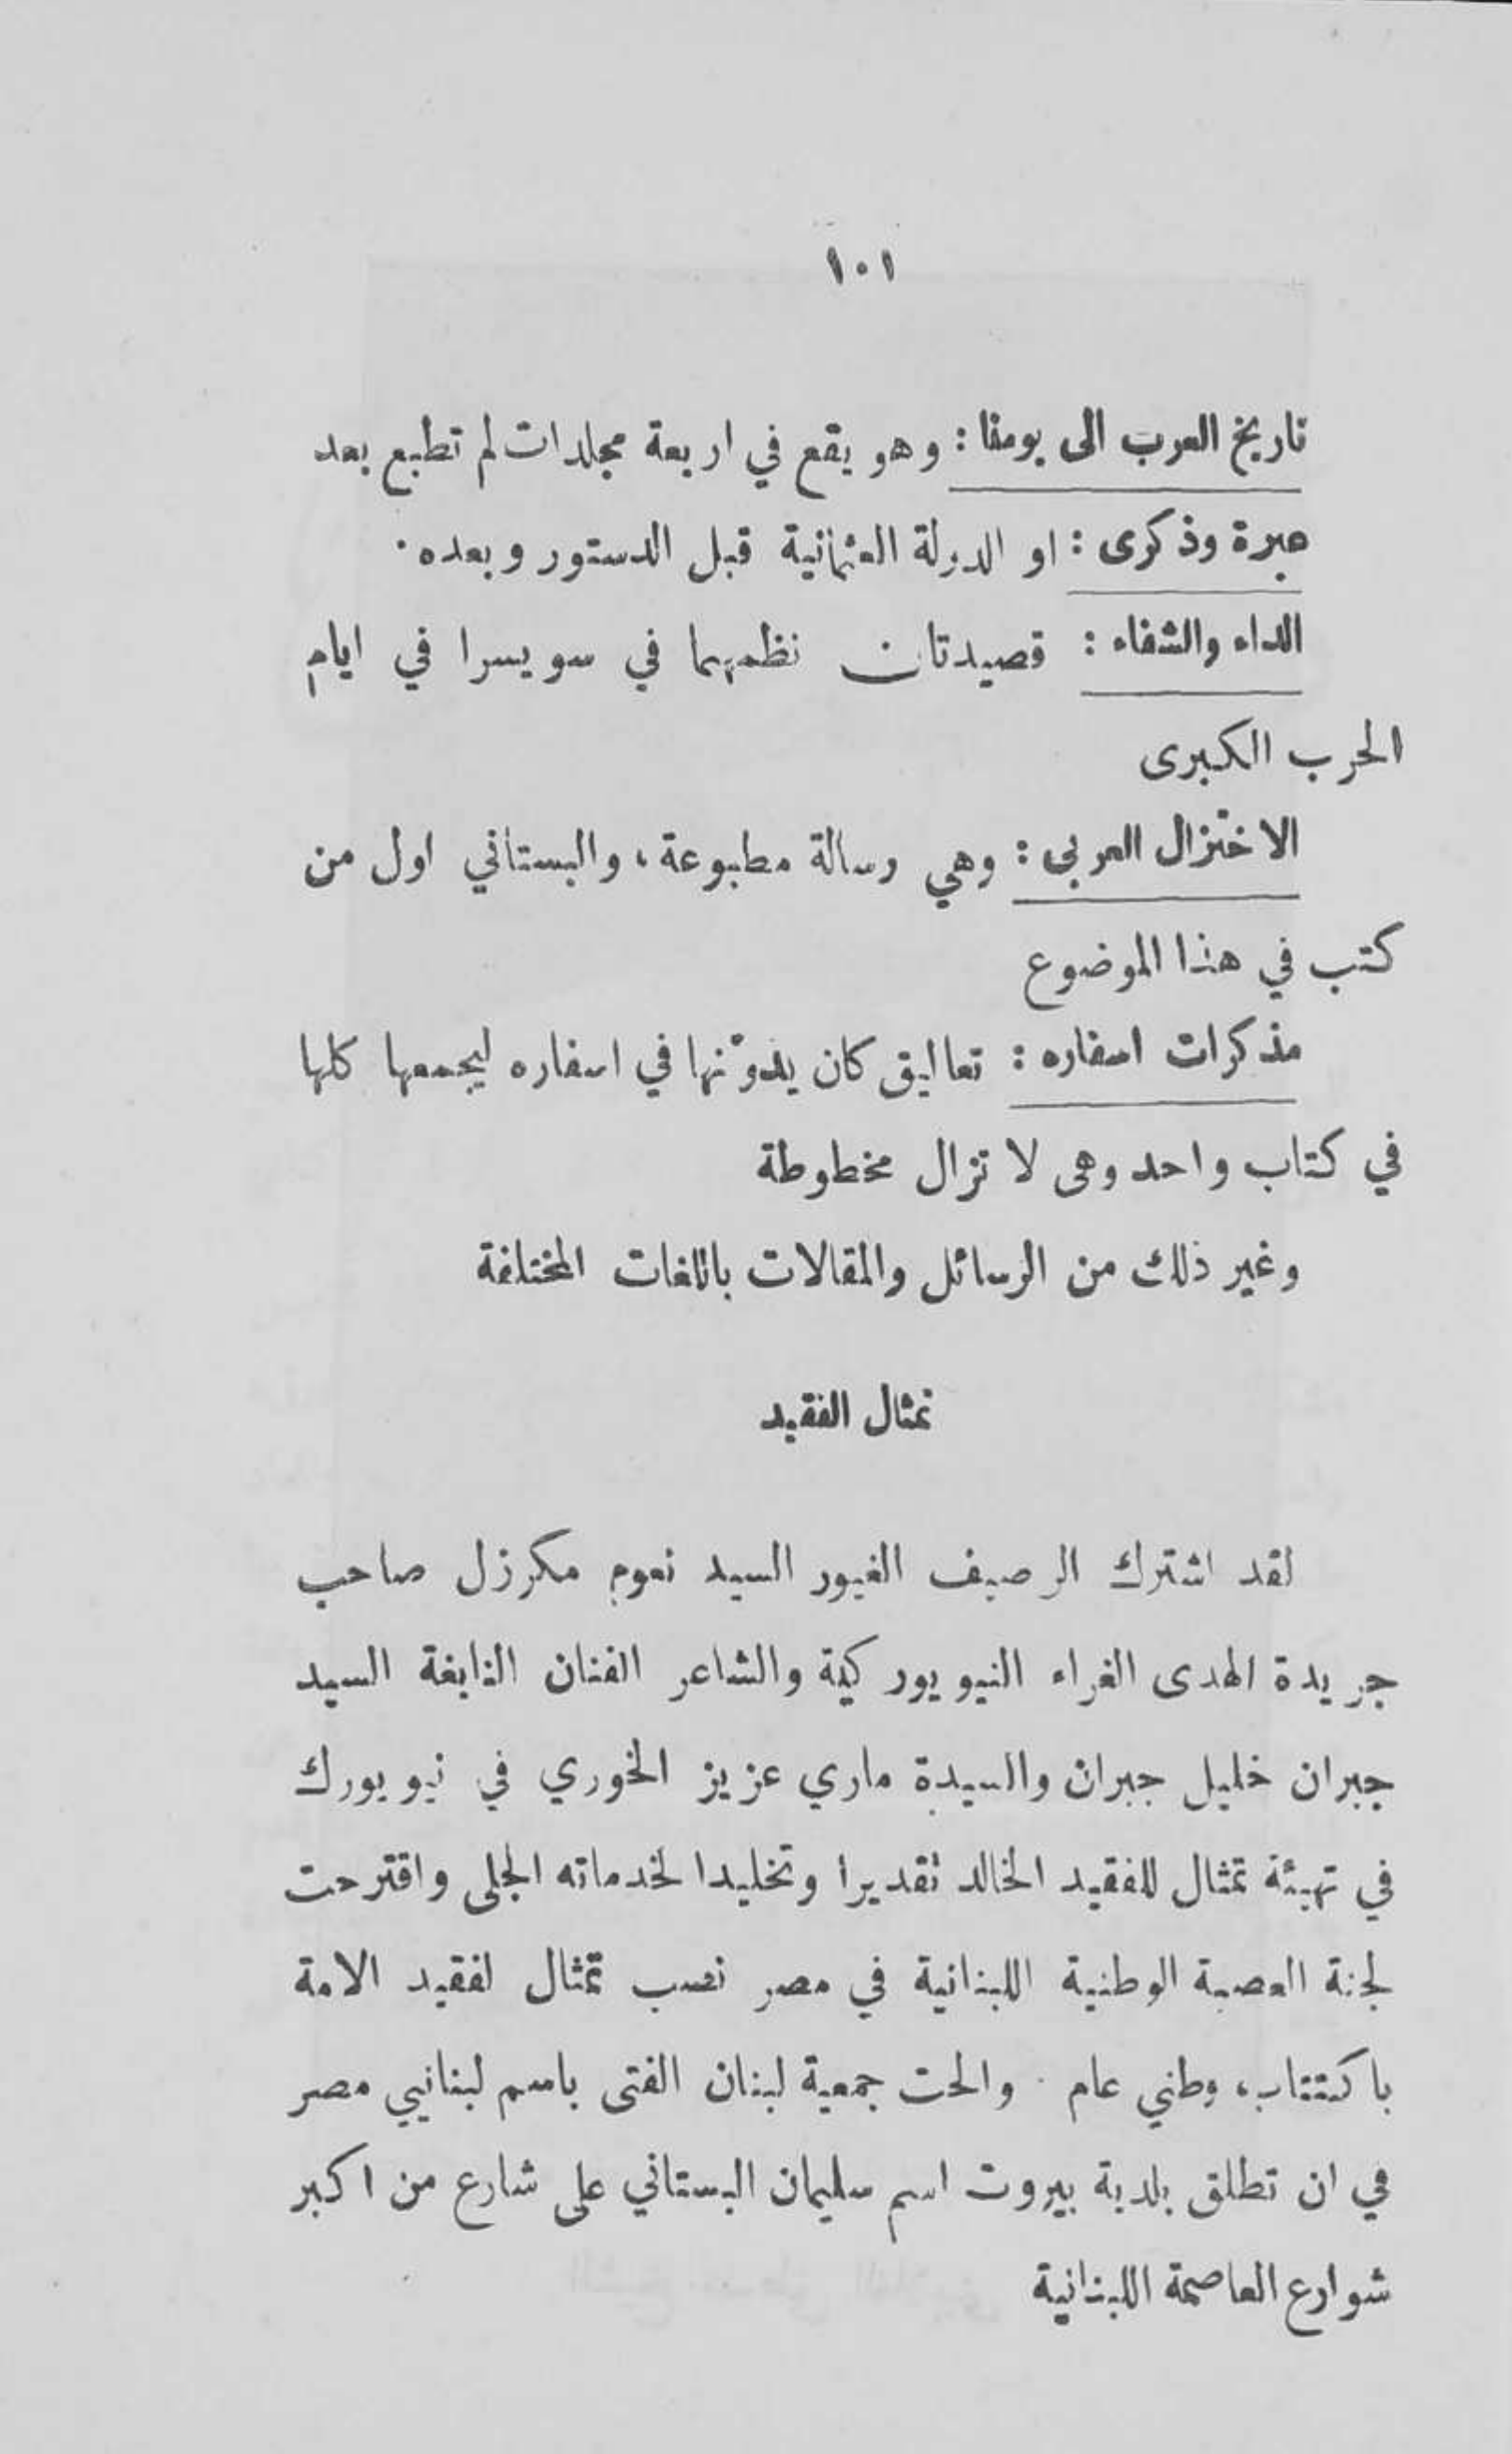 ١٠١
تاريخ العرب الى يومنا : وهو يقع في اربعة مجلدات لم تطبع بعد
عبرة وذكرى : او الدولة العثمانية قبل الدستور وبعده ·
الداء والشفاء : قصيدتان نظمهما في سويسرا في ايام
الحرب الكبرى
الاختزال العربي : وهي رسالة مطبوعة ، والبستاني اول من
كتب في هذا الموضوع
مذكرات اسفاره : تعاليق كان يدوّنها في اسفاره ليجمعها كلها
في كتاب واحد وهى لا تزال مخطوطة
وغير ذلك من الرسائل والمقالات باللغات المختلفة
تمثال الفقيد
لقد اشترك الرصيف الغيور السيد نعوم مكرزل صاحب
جريدة الهدى الغراء النيويوركية والشاعر الفنان النابغة السيد
جبران خليل جبران والسيدة ماري عزيز الخوري في نيويورك
في تهيئة تمثال للفقيد الخالد تقديرا وتخليدا لخدماته الجلى واقترحت
لجنة العصبة الوطنية اللبنانية في مصر نصب تمثال لفقيد الامة
باكتتاب، وطني عام · والحت جمعية لبنان الفتى باسم لبنانيي مصر
في ان تطلق بلدية بيروت اسم سليمان البستاني على شارع من اكبر
شوارع العاصمة اللبنانية